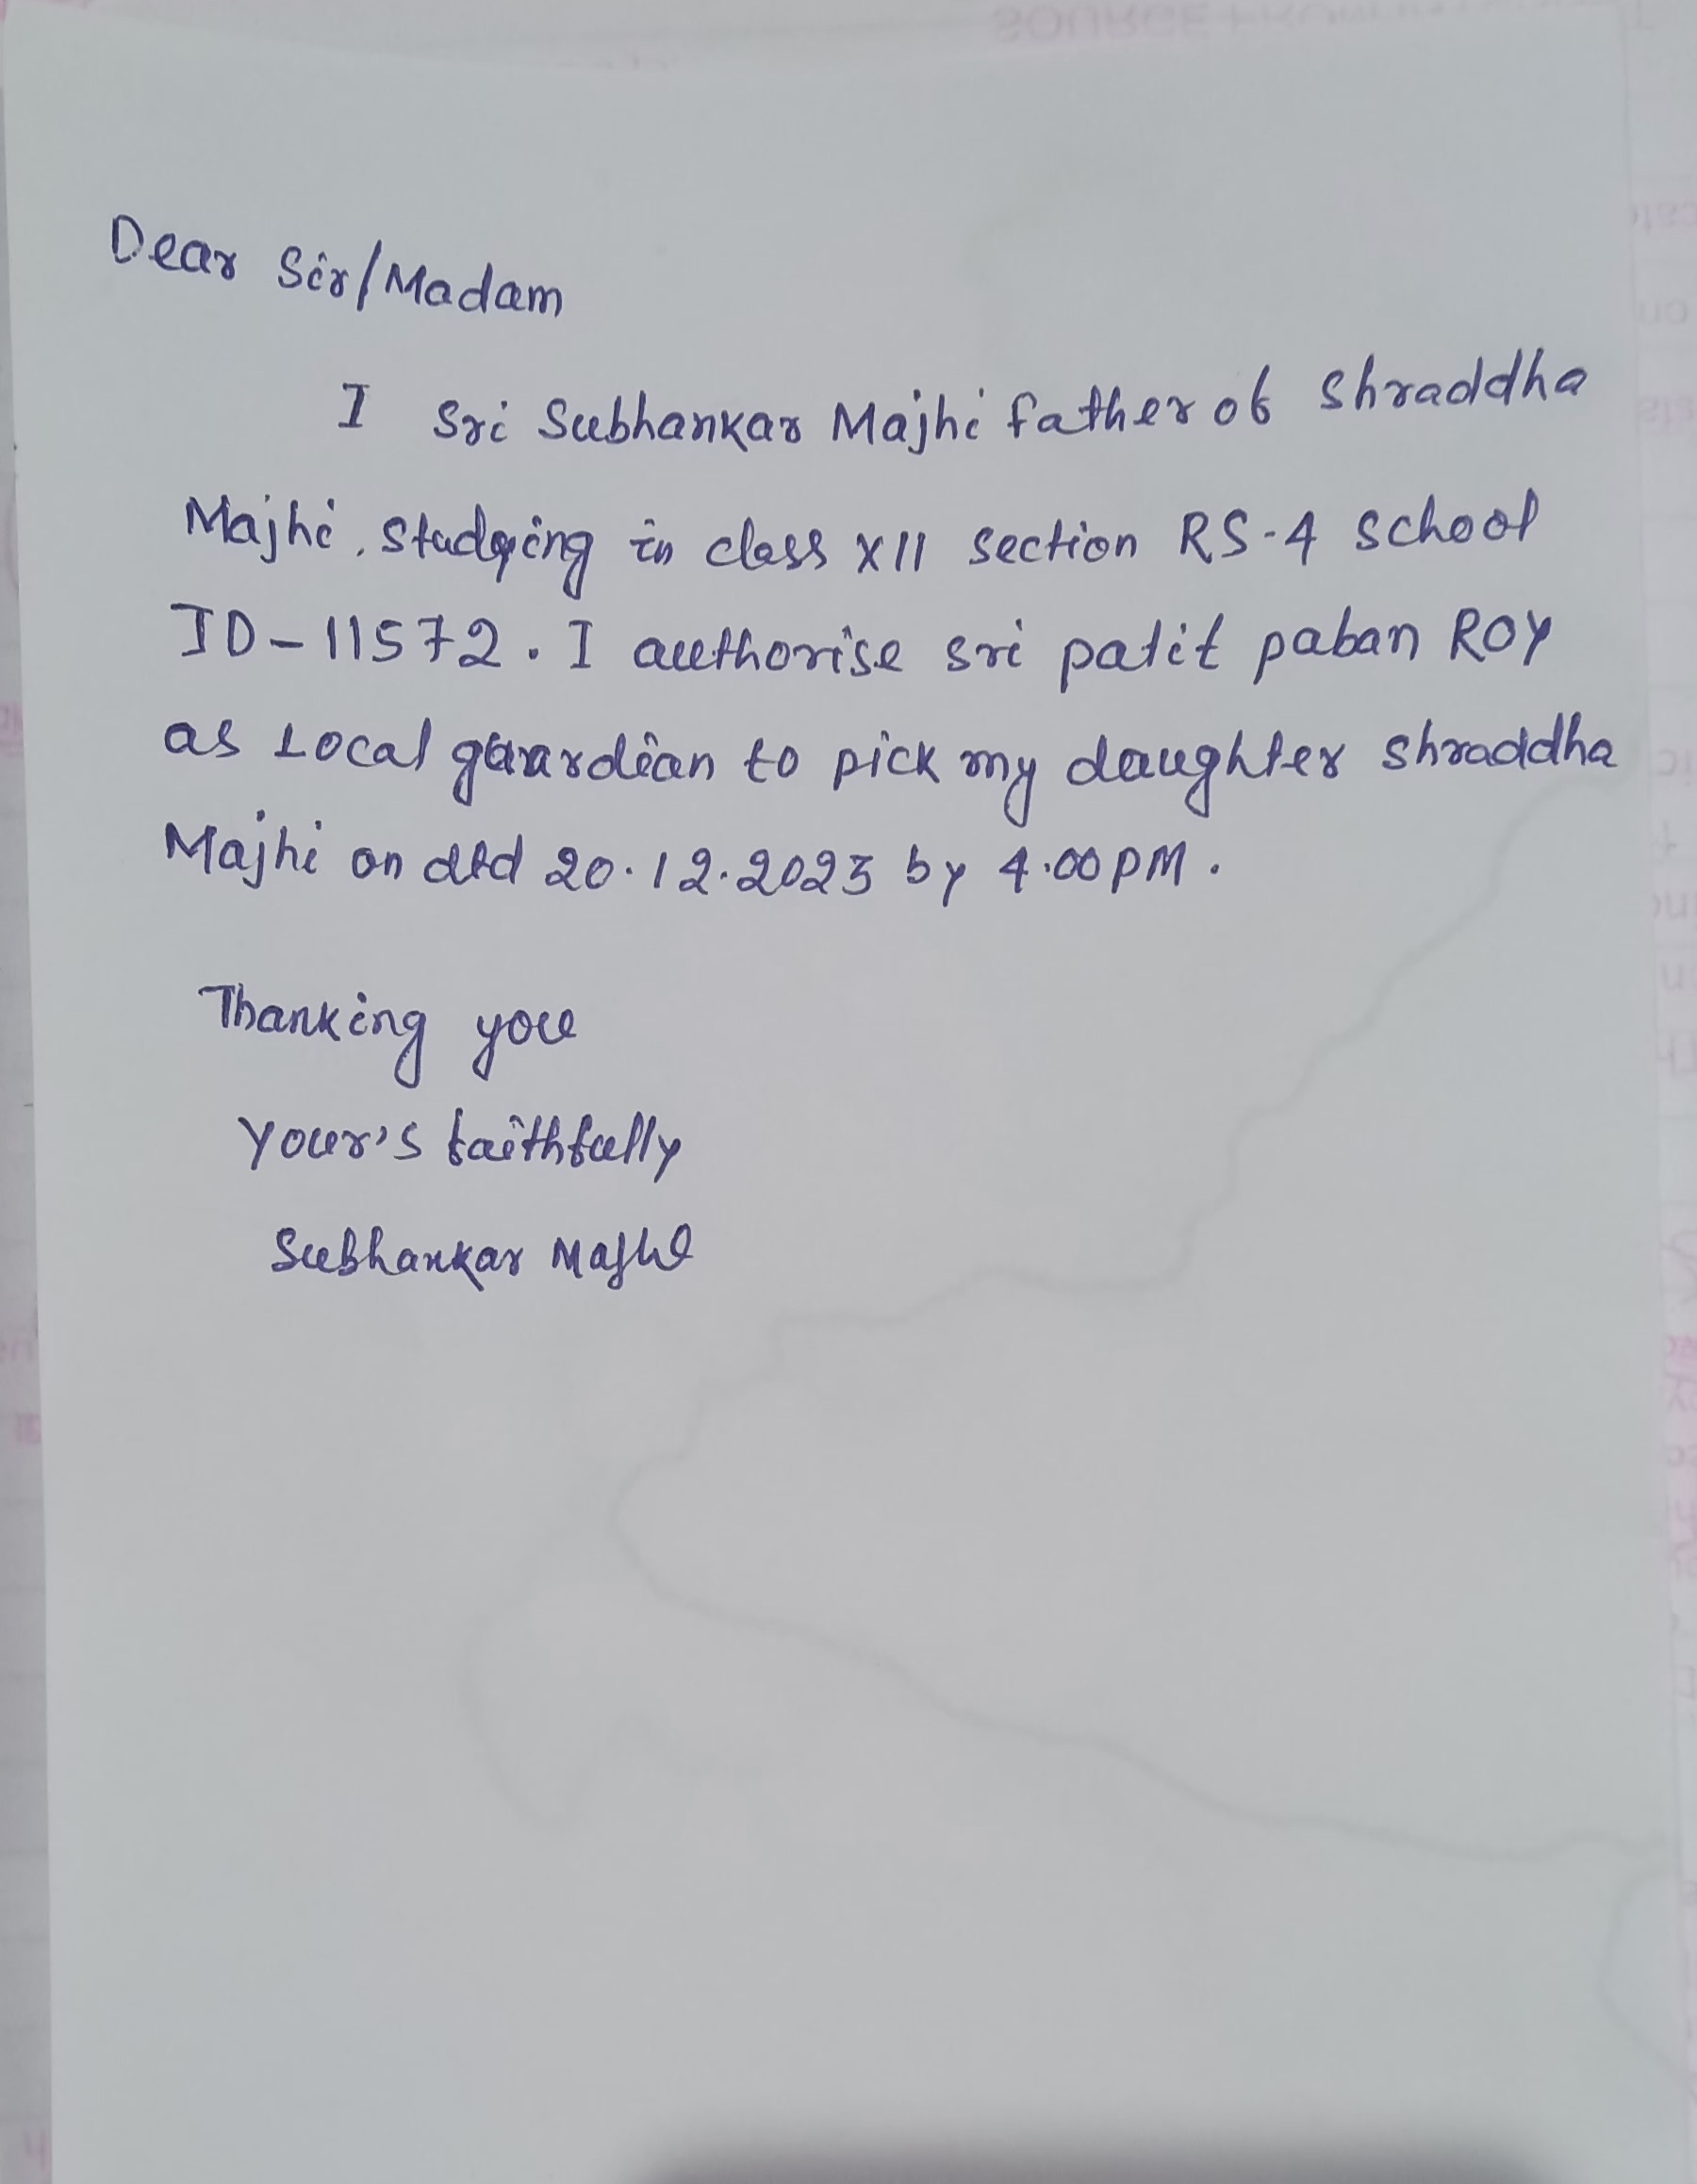 Dear Sir/Madam
I Sri Subhankar Majhi father of Shraddha
Majhi, Studying in class XII section RS-4 School
ID-11572. I authorise sri patit paban ROY
as Local guardian to pick my daughter shraddha
Majhi on dtd 20.12.2023 by 4.00 PM.
Thanking you
Your's faithfully
Subhankar Majhi